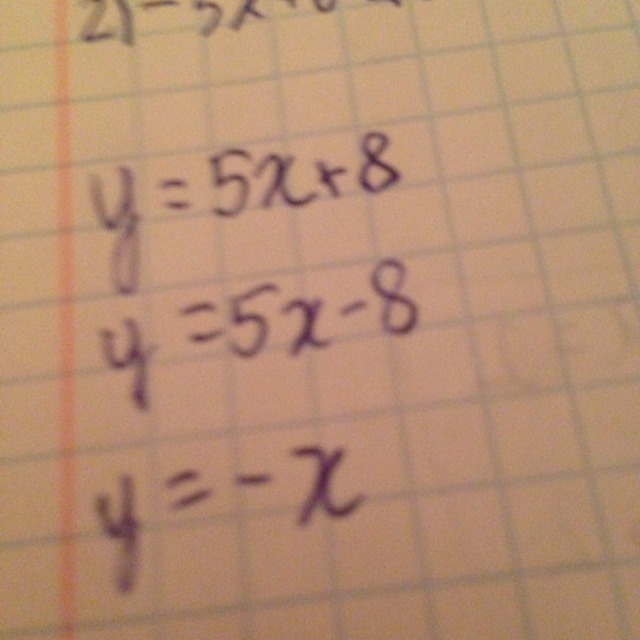 2) -5x+
y = 5x+8
y = 5x-8
y = -x